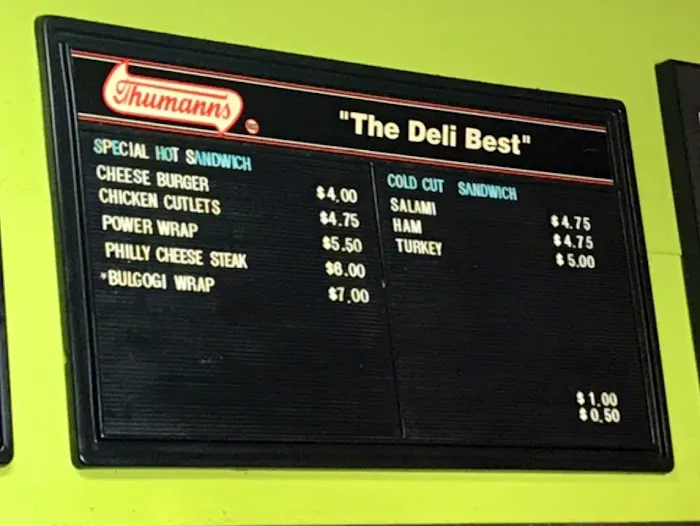 Thumanns
"The Deli Best"
SPECIAL HOT SANDWICH
CHEESE BURGER $4.00
CHICKEN CUTLETS $4.75
POWER WRAP $5.50
PHILLY CHEESE STEAK $6.00
*BULGOGI WRAP $7.00
COLD CUT SANDWICH
SALAMI $4.75
HAM $4.75
TURKEY $5.00
$1.00
$0.50